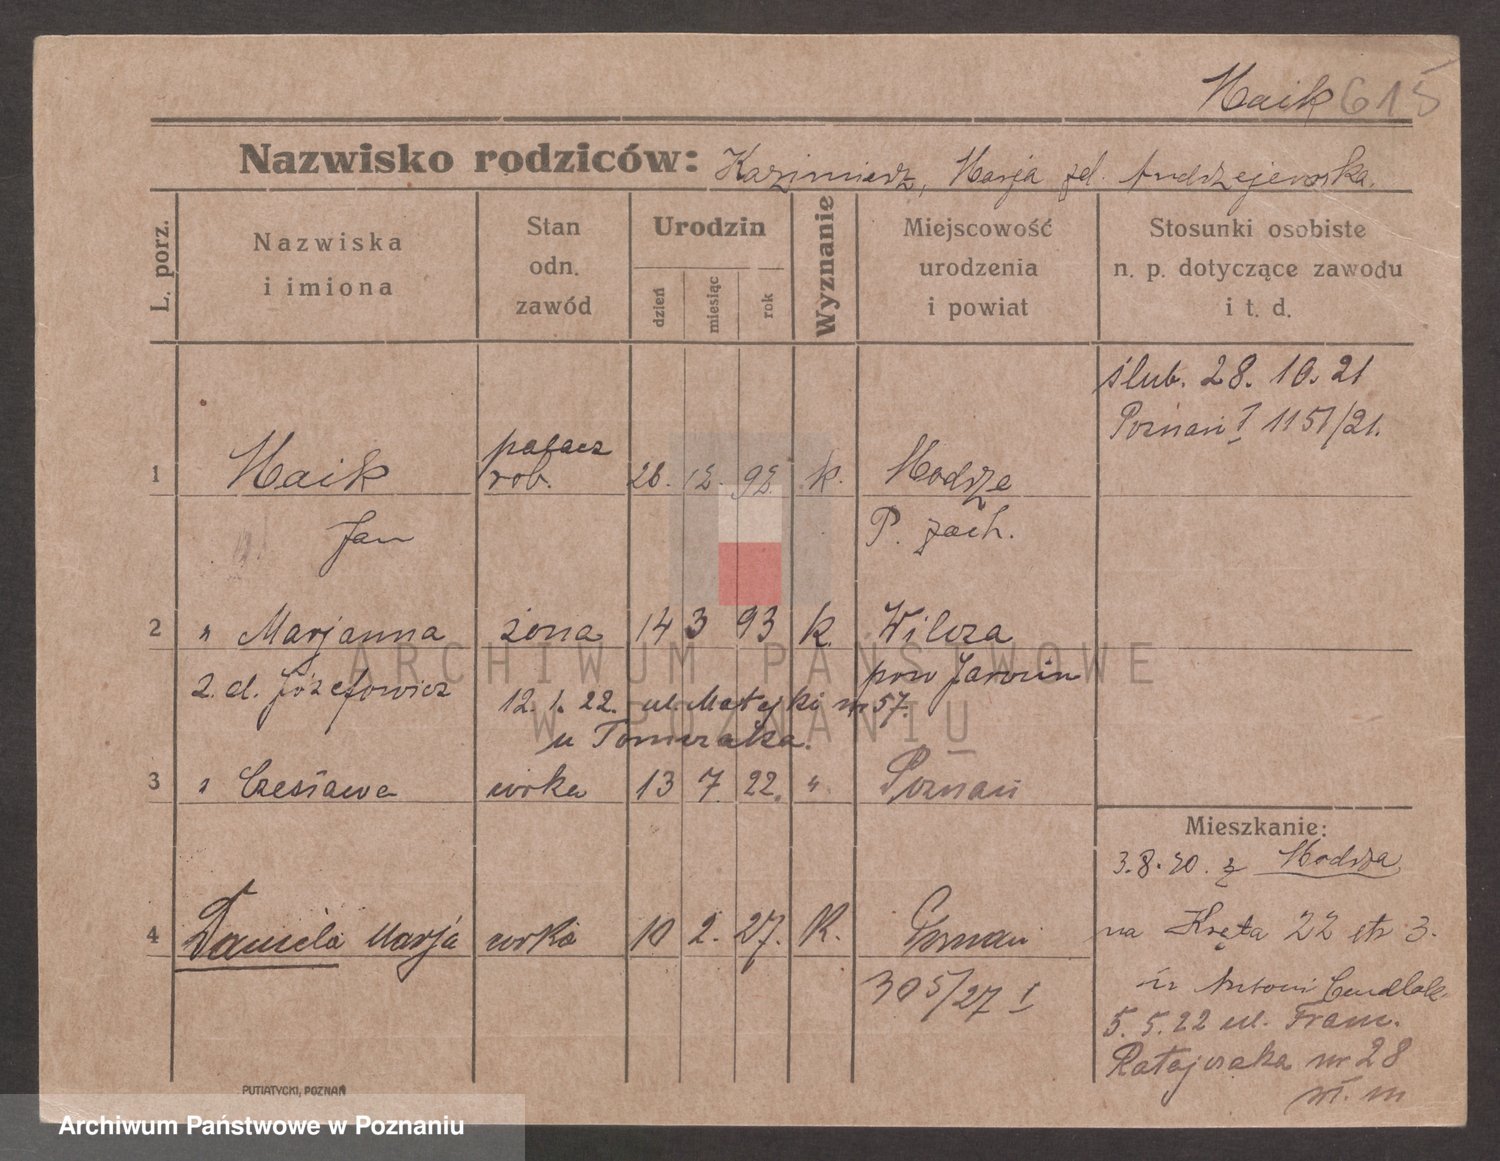 Haik 615
Nazwisko rodziców: Kazimierz, Marja zd. Andrzejewska.
L. porz.
Nazwiska
i imiona
Stan
odn.
zawód
Urodzin
dzień
miesiąc
rok
Wyznanie
Miejscowość
urodzenia
i powiat
Stosunki osobiste
n. p. dotyczące zawodu
i t. d.
ślub. 28. 10. 21
Poznań I 1151/21.
palacz
1 Haik rob. 26. 12. 92. k. Modrze
Jan P. zach.
2 " Marjanna żona 14 3 93 k. Wilcza
2. d. Józefowicz pow Jarocin
12. 1. 22. ul. Matejki nr 57.
u Tomczaka.
3 " Czesława córka 13 7 22. " Poznań
Mieszkanie:
3.8.20. z Modrza
4 Daniela Marja córka 10 2. 27. K. Poznań
305/27 I
na Kręta 22 ptr 3.
Antoni
5. 5. 22 ul. Franc.
Ratajczaka nr 28
PUTIATYCKI, POZNAŃ
ARCHIWUM PAŃSTWOWE
W POZNANIU
Archiwum Państwowe w Poznaniu